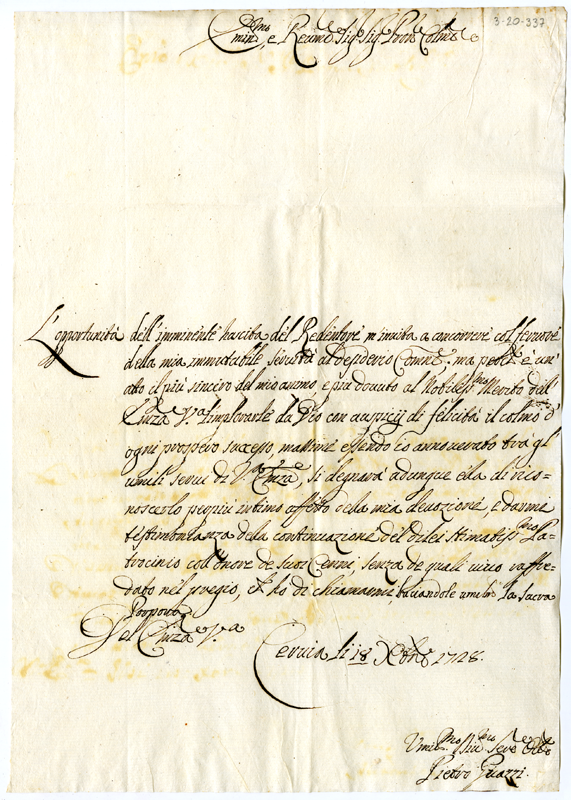 3-20-337
Emin.mo, e Reu.mo Sig.re Sig.re Pron Colmo
L'opportunità dell'imminente nascita del Redentore m'inuita a concorrere col feruore
della mia immutabile seruitù al desiderio Comune; ma perche è un'
atto il più sincero del mio animo, e più douuto al Nobiliss.mo Merito dell'
Em.za V.ra l'implorarle da Dio con auspicij di felicità il colmo d'
ogni prospero successo, massime essendo io annouerato tra gl'
umili serui di V.ra Em.za, si degnarà adunque ella di rico=
noscerlo per più intimo affetto della mia deuozione, e darmi
testimonianza della continuazione del di lei stimatiss.mo Pa=
trocinio coll'onore de suoi Cenni senza de quali uiuo raffre=
dato nel pregio, che hò di chiamarmi, baciandole umile la sacra
Porpora
Dell' Em.za V.ra
Ceruia li 18 Xbre 1728.
Umil.mo
Pietro Guazzi.